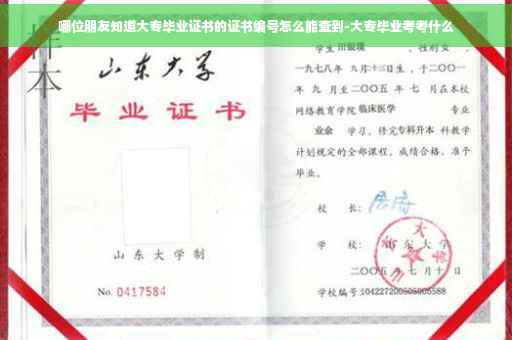 哪位朋友知道大专毕业证书的证书编号怎么能查到-大专毕业考考什么
样本
山东大学
毕业证书
山东大学制
No. 0417584
学生 性别女,
一九七八年 九月十二日生,于二〇〇一
年 九 月至二〇〇五 年 七 月在本校
网络教育学院 临床医学 专业
业余 学习,修完专科升本 科教学
计划规定的全部课程,成绩合格,准予
毕业。
校 长:
学 校: 山东大学
二〇〇五 年 七 月 十 日
学校编号:104227200505005588